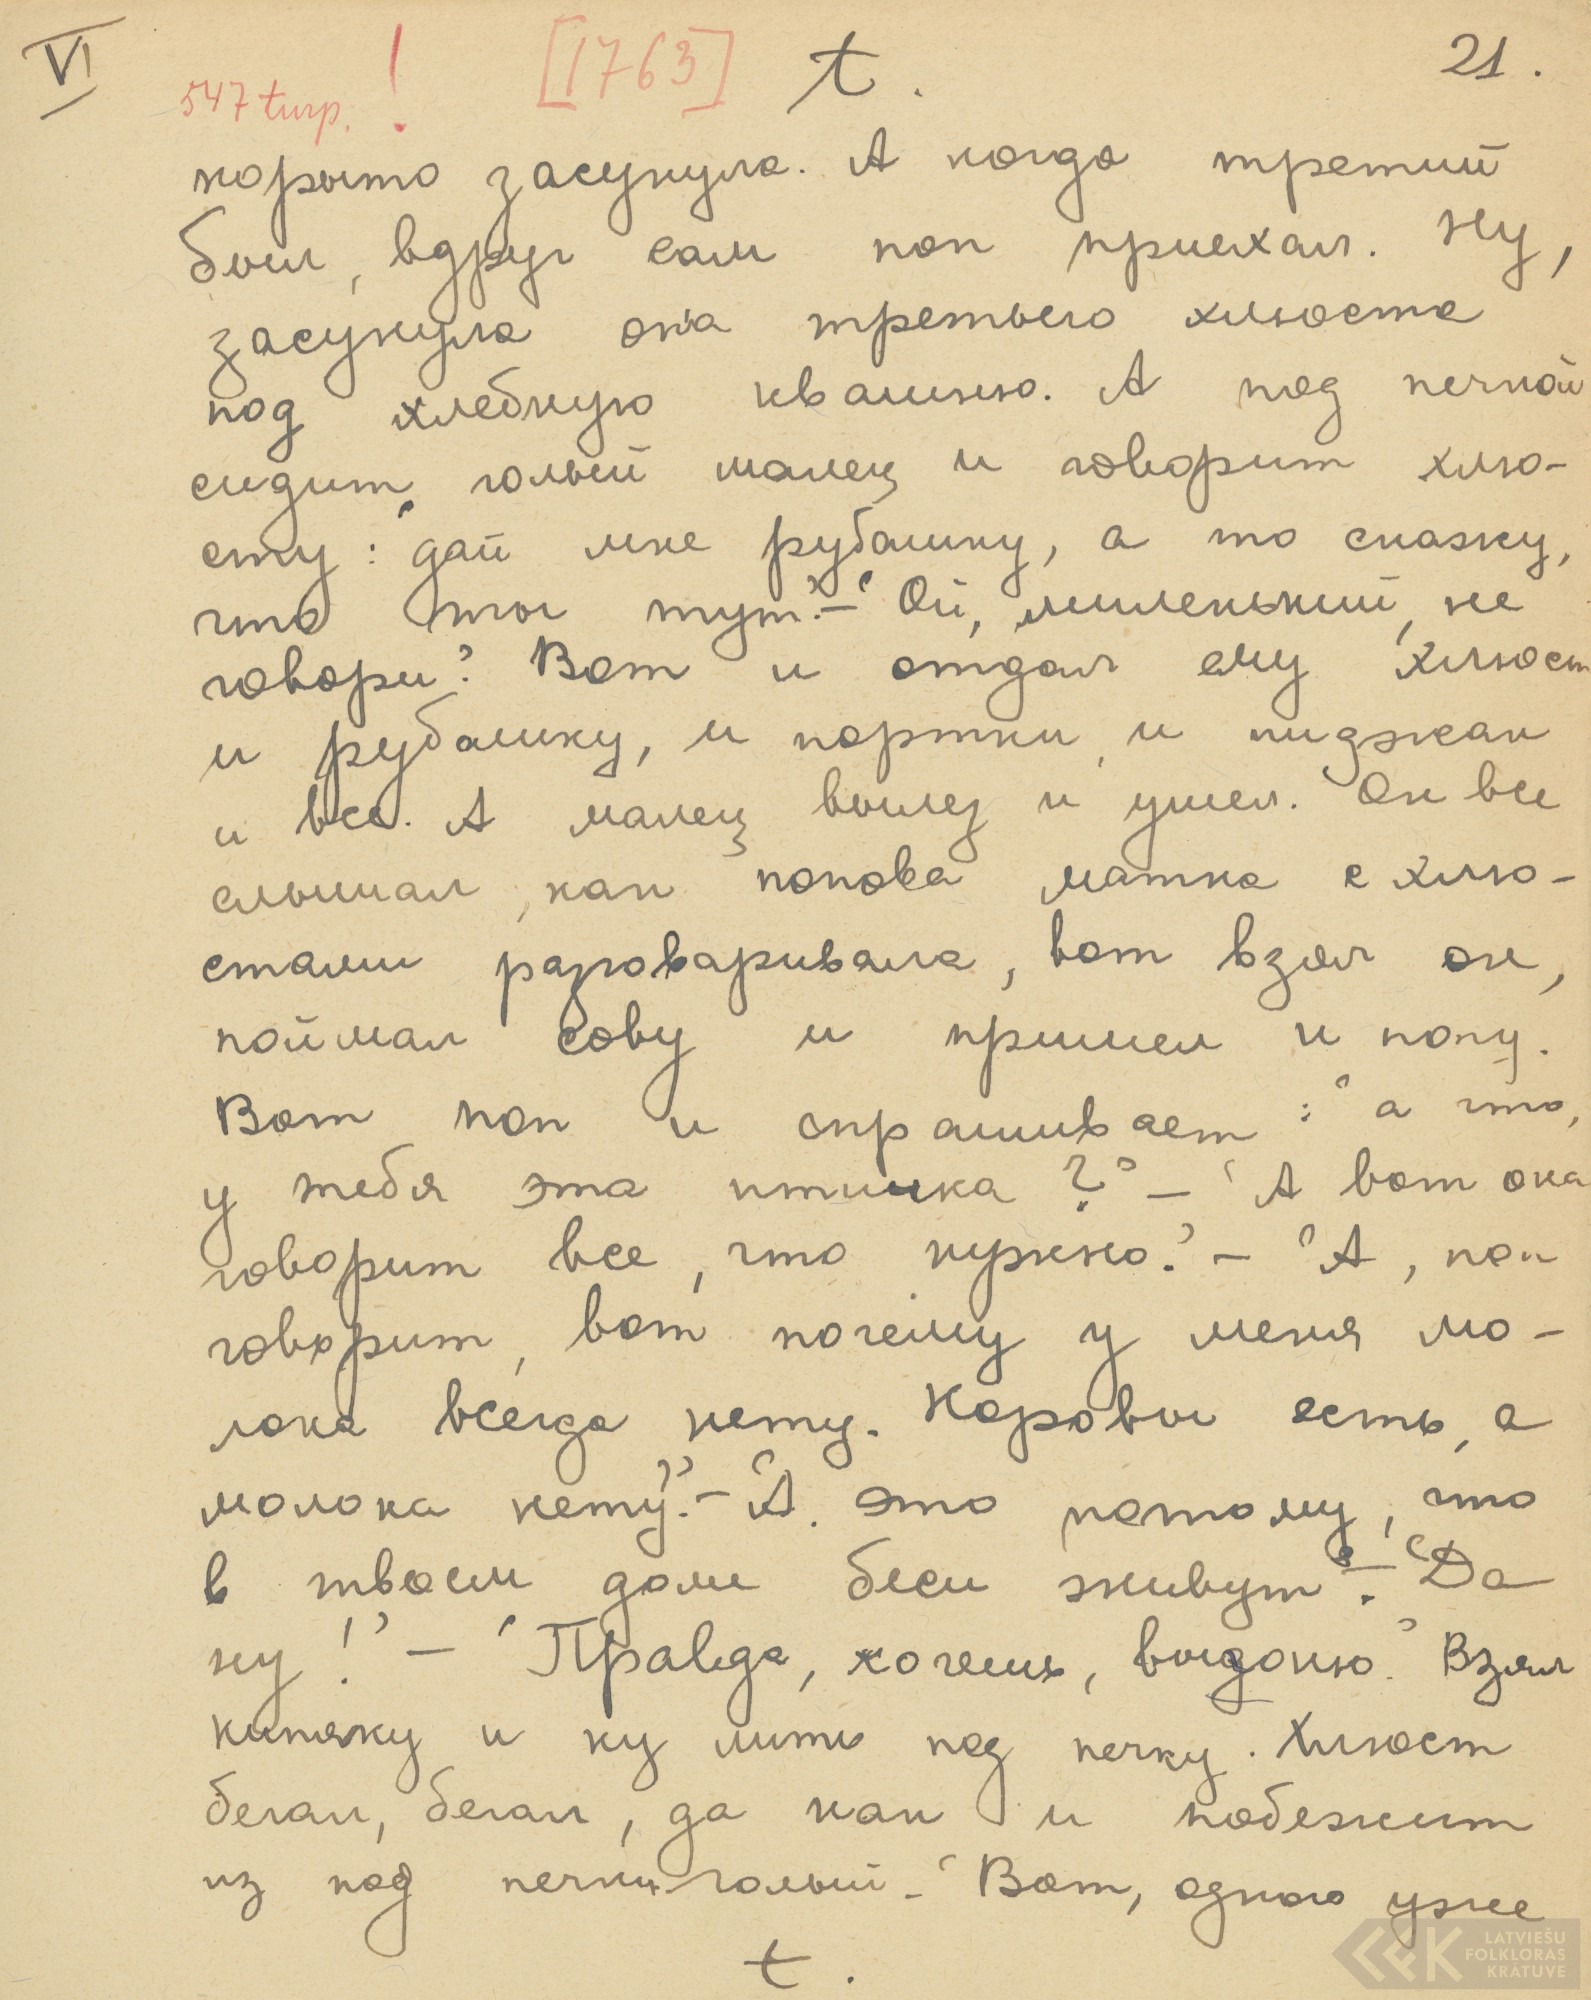 VI
547 turp. !
[1763]
t.
21.
корыто засунула. А когда третий
был, вдруг сам поп приехал. Ну,
засунула она третьего хлюста
под хлебную квашню. А под печкой
сидит голый малец и говорит хлю-
сту: "дай мне рубашку, а то скажу,
что ты тут." – "Ой, миленький, не
говори." Вот и отдал ему хлюст
и рубашку, и портки, и пиджак
и все. А малец вылез и ушел. Он все
слышал, как попова матка с хлю-
стами разговаривала, вот взял он,
поймал сову и пришел к попу.
Вот поп и спрашивает: "а что,
у тебя эта птичка?" – "А вот она
говорит все, что нужно." – "А, поп
говорит, вот почему у меня мо-
лока всегда нету. Коровы есть, а
молока нету." – "А это потому, что
в твоем доме бесы живут." – "Да
ну!" – "Правда, хочешь, выгоню." Взял
кипятку и ну лить под печку. Хлюст
бегал, бегал, да как и побежит
из под печки голый. – "Вот, одного уже
t.
LATVIEŠU
FOLKLORAS
KRĀTUVE